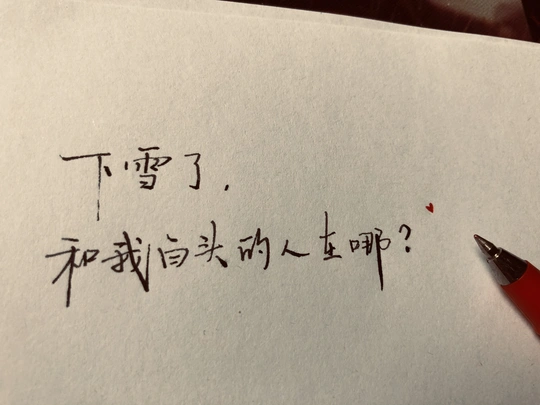 下雪了,
和我白头的人在哪?